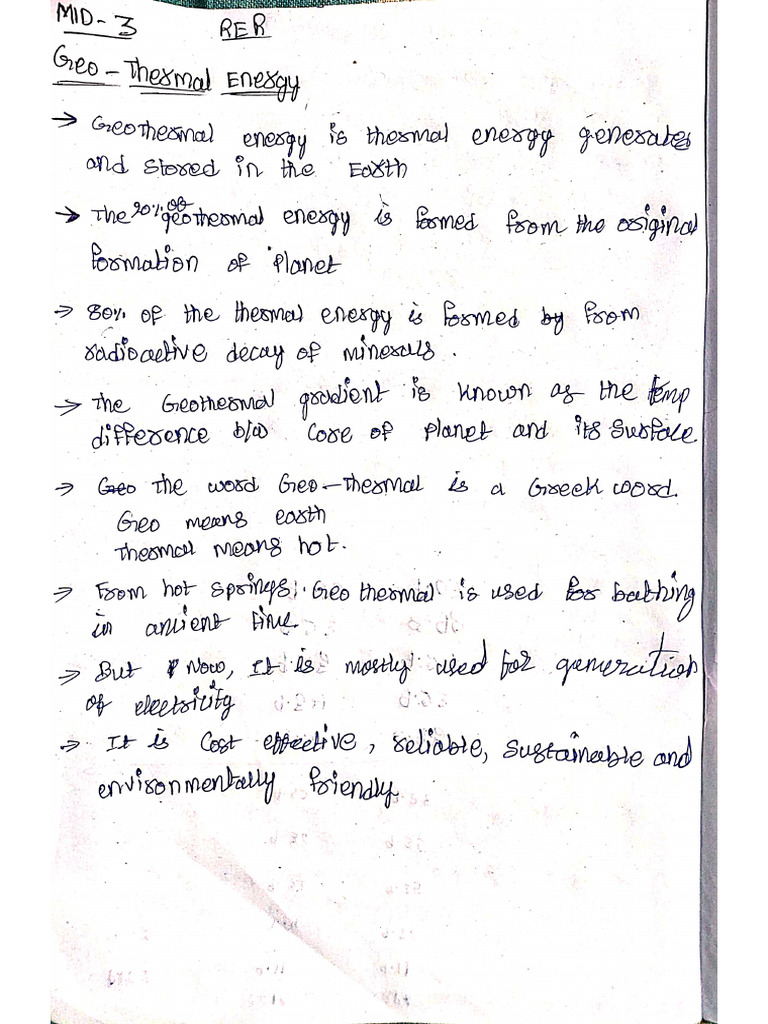 MID-3 RER
Geo-Thermal Energy
→ Geothermal energy is thermal energy generates
and stored in the Earth
→ The 20% of geothermal energy is formed from the original
formation of Planet
→ 80% of the thermal energy is formed by from
radioactive decay of minerals.
→ The Geothermal gradient is known as the temp
difference b/w Core of Planet and its surface.
→ Geo The word Geo-thermal is a Greek word.
Geo means earth
thermal means hot.
→ From hot springs, Geo thermal is used for bathing
in ancient time.
→ But Now, It is mostly used for generation
of electricity
→ It is Cost effective, reliable, Sustaineable and
environmentally friendly